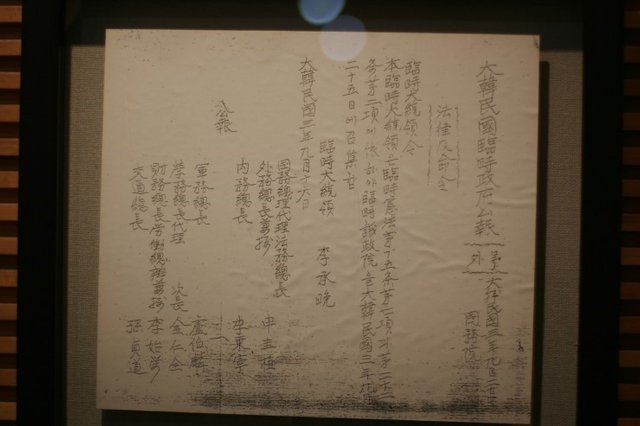 大韓民國臨時政府公報
號外
大韓民國三年九月二十
國務院
法律及命令
臨時大統領令
本臨時大統領은臨時憲法第十五条第二項과第二十二
条第二項의依하야臨時議政院을大韓民國三年九月
二十五日에召集함
大韓民國三年九月十六日
臨時大統領 李承晩
國務總理代理法務總長
外務總長兼摂 申圭植
內務總長 李東寧
公報
軍務總長 盧伯麟
學務總長代理 次長 金仁全
財務總長勞働總辦兼摂 李始榮
交通總長 孫貞道